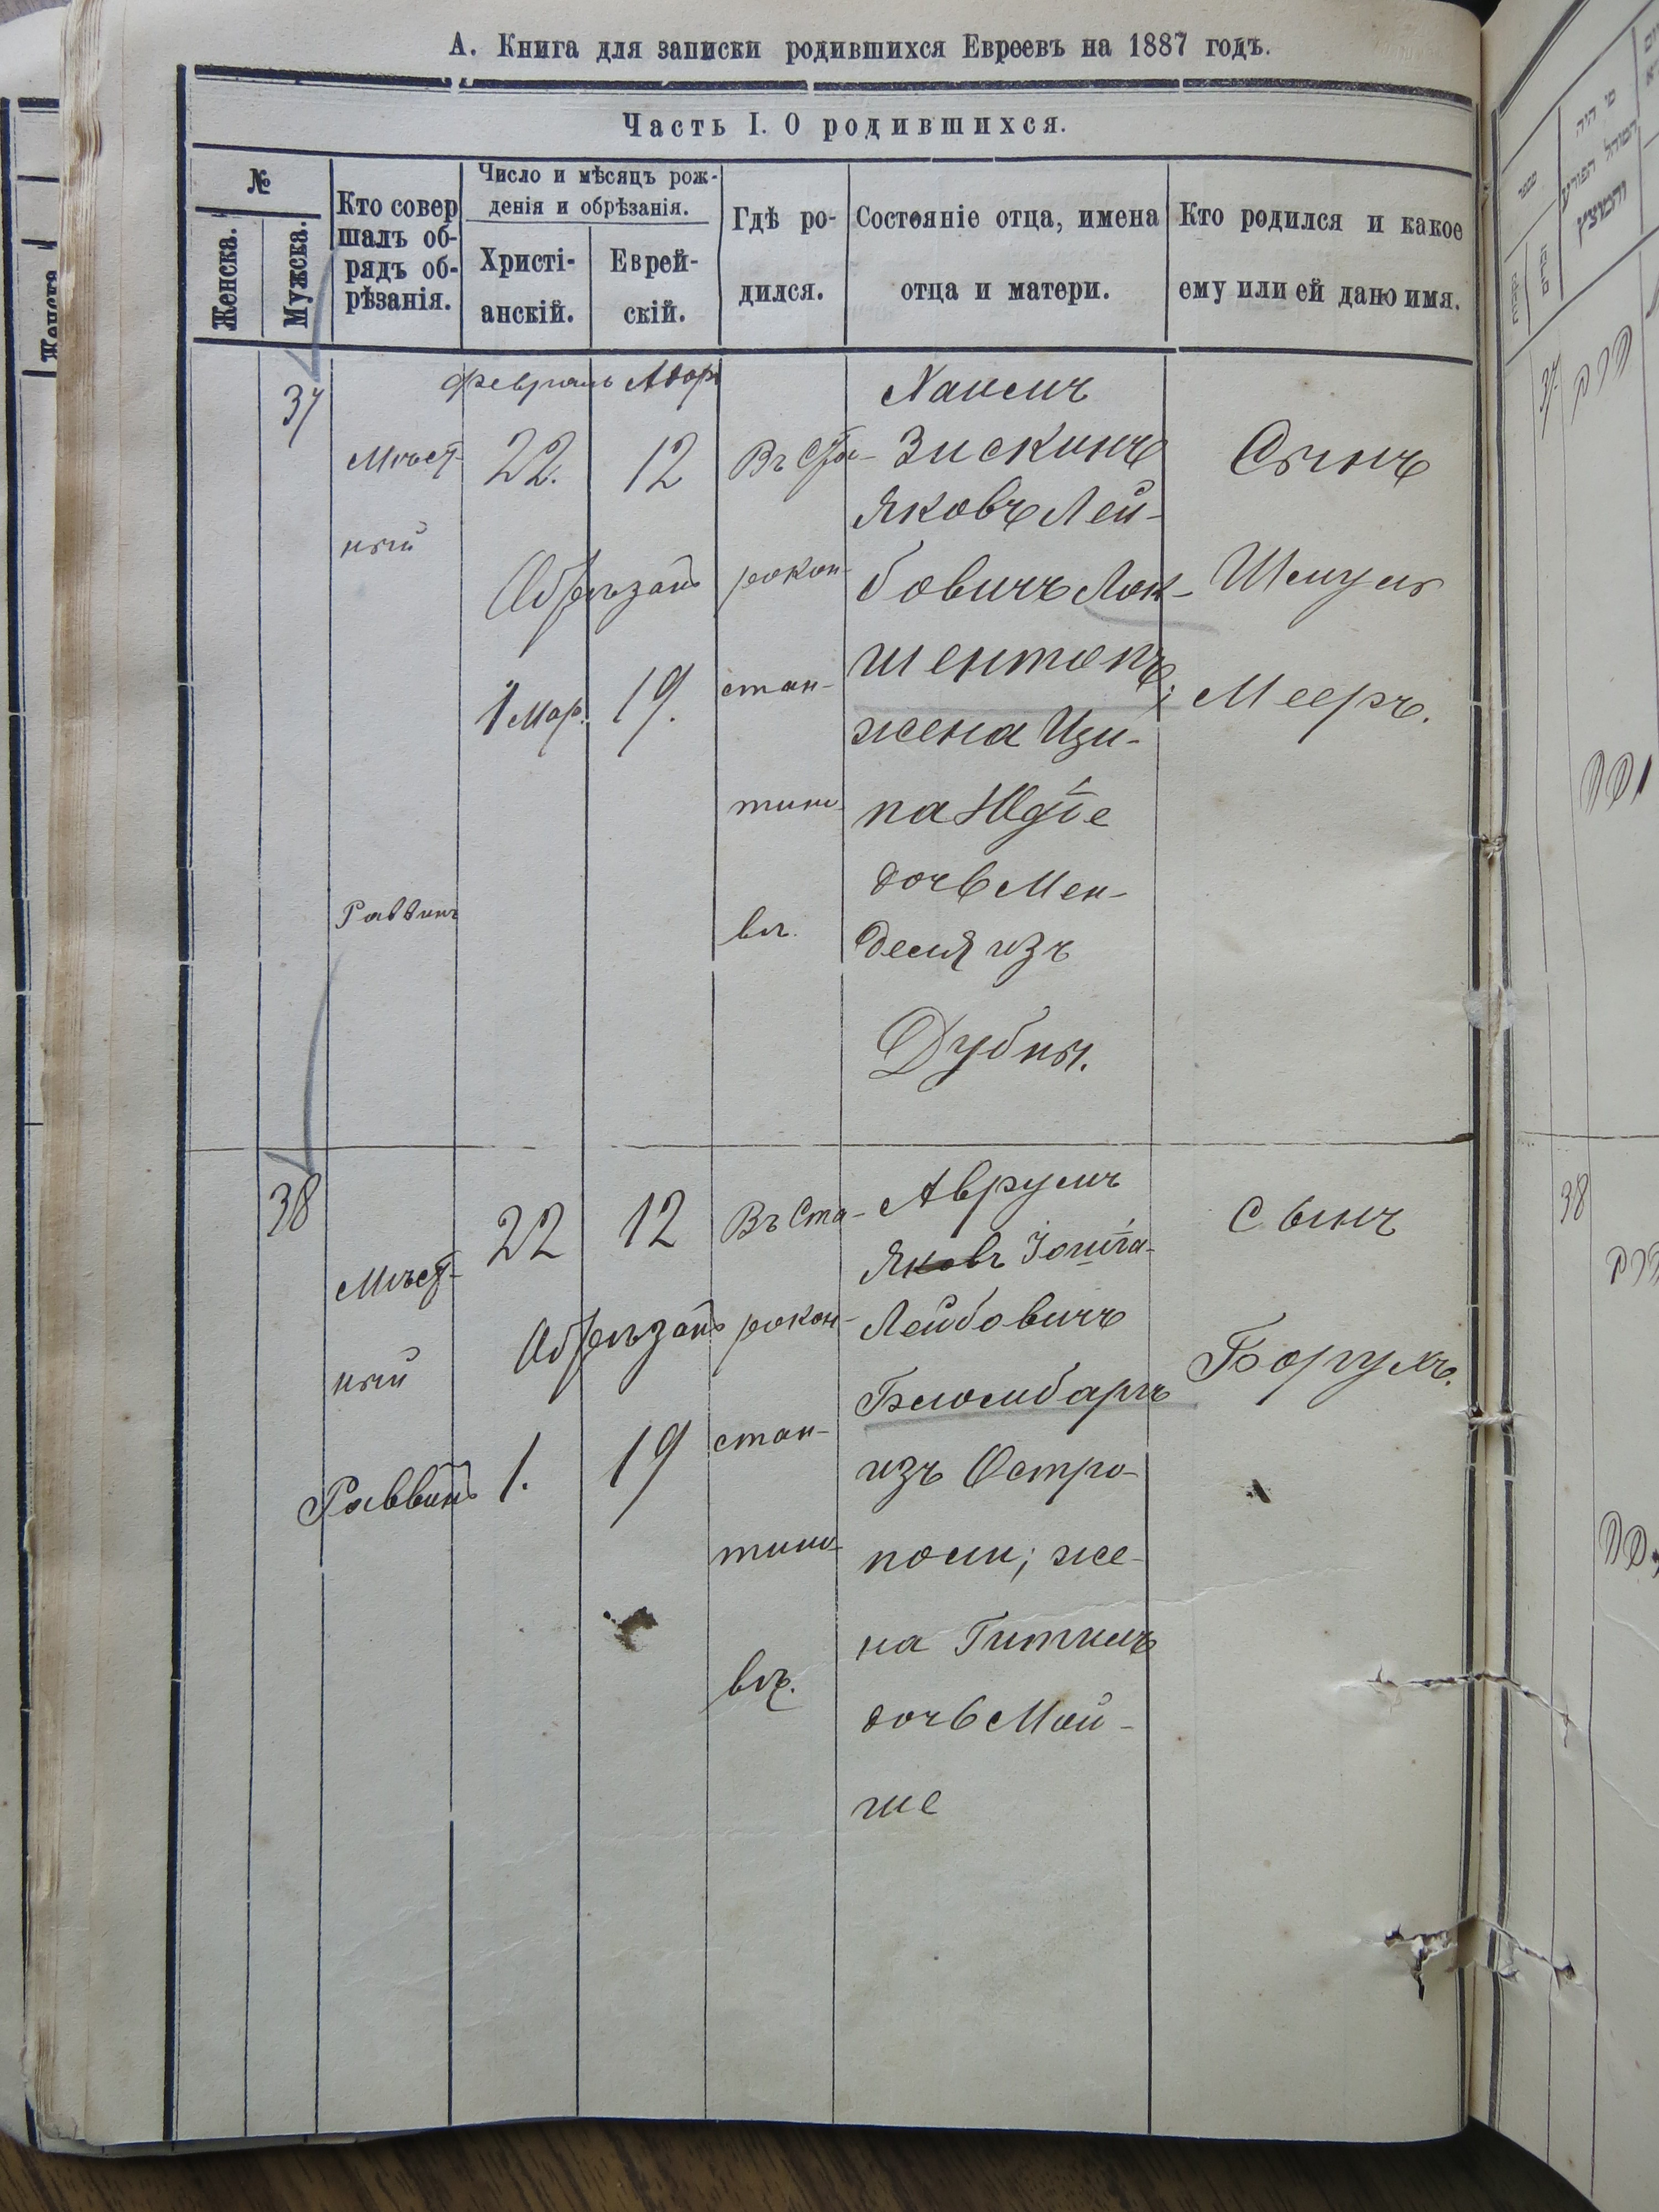 А. Книга для записки родившихся Евреевъ на 1887 годъ.
Часть I. О родившихся.
№
Женска.
Мужска.
Кто совер
шалъ об-
рядъ об-
рѣзанія.
Число и мѣсяцъ рож-
денія и обрѣзанія.
Христі-
анскій.
Еврей-
скій.
Гдѣ ро-
дился.
Состояніе отца, имена
отца и матери.
Кто родился и какое
ему или ей дано имя.
37
Мѣст-
ный
Раввинъ
Февраль Адаръ
22. 12
Обрѣзанъ
1 Мар. 19.
Въ Ста-
рокон-
стан-
тино-
вѣ.
Хаимъ
Зискинъ
Яковъ Лей-
бовичъ Лок-
шентопъ;
жена Ци-
па Юдіе
дочь Мен-
деля изъ
Дубны.
Сынъ
Шмуль
Мееръ.
38
Мѣст-
ный
Раввинъ
22 12
Обрѣзанъ
1. 19
Въ Ста-
рокон-
стан-
тино-
вѣ.
Аврумъ
Яковъ
Лейбовичъ
Блюмбаргъ
изъ Остро-
поли; же-
на Гитиль
дочь Мой-
ше
Сынъ
Борухъ.
37
38